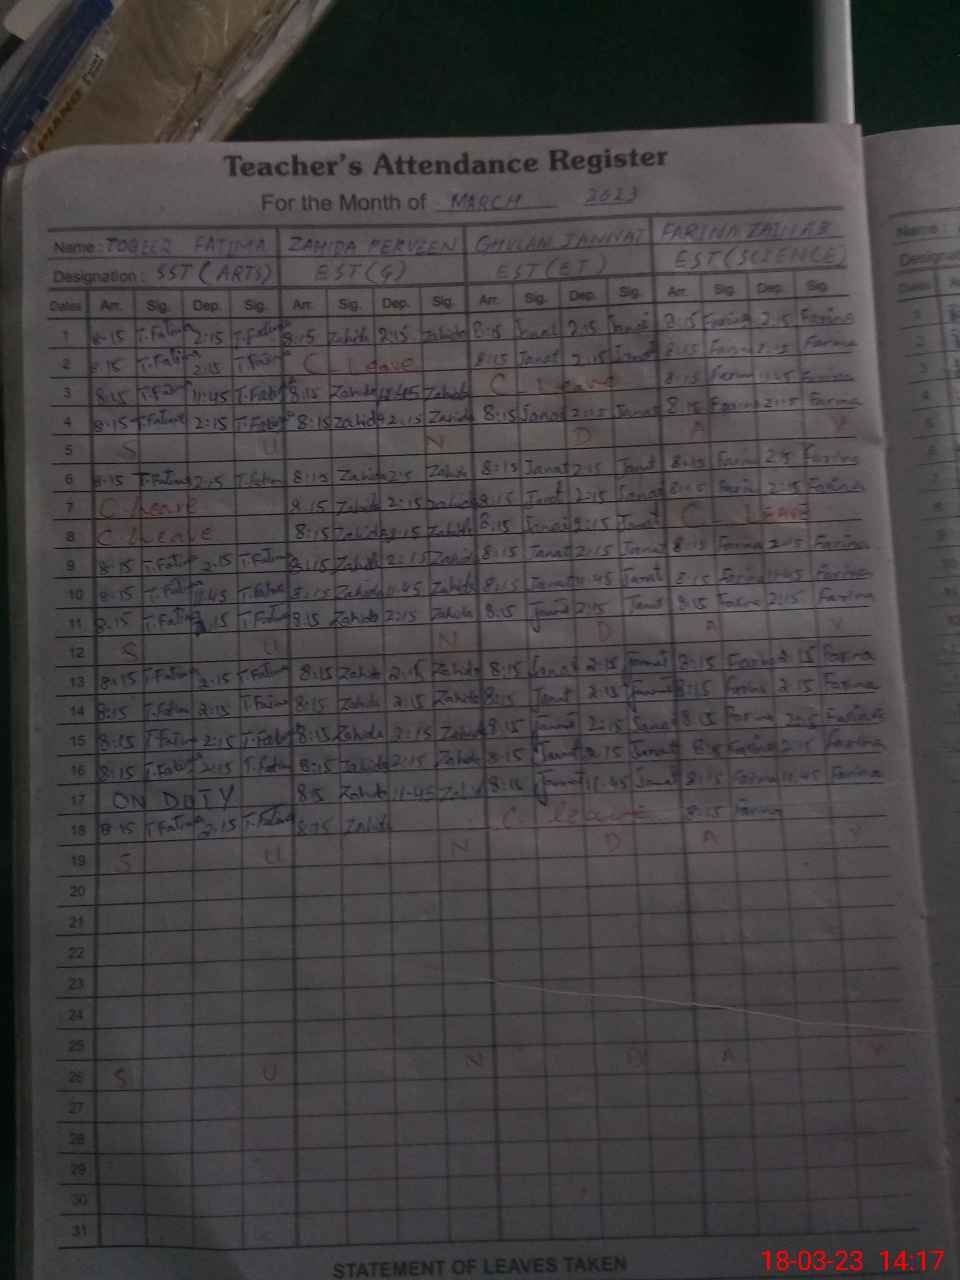 CHANCE
Teacher's Attendance Register
For the Month of MARCH 2023
Name : TOQEER FATIMA ZAHIDA PERVEEN GHULAM JANNAT FARINA ZAINAB
Designation : SST (ARTS) EST (G) EST (ET) EST (SCIENCE)
Dates Arr. Sig. Dep. Sig. Arr. Sig. Dep. Sig. Arr. Sig. Dep. Sig. Arr. Sig. Dep. Sig
1 8:15 T.Fatima 2:15 T.Fatima 8:15 Zahida 2:15 Zahida 8:15 Janat 2:15 Janat 8:15 Farina 2:15 Farina
2 8:15 T.Fatima 2:15 T.Fatima C Leave 8:15 Janat 2:15 Janat 8:15 Farina 2:15 Farina
3 8:15 T.Fatima 11:45 T.Fatima 8:15 Zahida 11:45 Zahida C Leave 8:15 Farina 11:45 Farina
4 8:15 T.Fatima 2:15 T.Fatima 8:15 Zahida 2:15 Zahida 8:15 Janat 2:15 Janat 8:15 Farina 2:15 Farina
5 S U N D A Y
6 8:15 T.Fatima 2:15 T.Fatima 8:15 Zahida 2:15 Zahida 8:15 Janat 2:15 Janat 8:15 Farina 2:15 Farina
7 C Leave 8:15 Zahida 2:15 Zahida 8:15 Janat 2:15 Janat 8:15 Farina 2:15 Farina
8 C Leave 8:15 Zahida 2:15 Zahida 8:15 Janat 2:15 Janat C LEAVE
9 8:15 T.Fatima 2:15 T.Fatima 8:15 Zahida 2:15 Zahida 8:15 Janat 2:15 Janat 8:15 Farina 2:15 Farina
10 8:15 T.Fatima 11:45 T.Fatima 8:15 Zahida 11:45 Zahida 8:15 Janat 11:45 Janat 8:15 Farina 11:45 Farina
11 8:15 T.Fatima 2:15 T.Fatima 8:15 Zahida 2:15 Zahida 8:15 Janat 2:15 Janat 8:15 Farina 2:15 Farina
12 S U N D A Y
13 8:15 T.Fatima 2:15 T.Fatima 8:15 Zahida 2:15 Zahida 8:15 Janat 2:15 Jannat 8:15 Farina 2:15 Farina
14 8:15 T.Fatima 2:15 T.Fatima 8:15 Zahida 2:15 Zahida 8:15 Janat 2:15 Jannat 8:15 Farina 2:15 Farina
15 8:15 T.Fatima 2:15 T.Fatima 8:15 Zahida 2:15 Zahida 8:15 Jannat 2:15 Janat 8:15 Farina 2:15 Farina
16 8:15 T.Fatima 2:15 T.Fatima 8:15 Zahida 2:15 Zahida 8:15 Janat 2:15 Janat 8:15 Farina 2:15 Farina
17 ON DUTY 8:15 Zahida 11:45 Zahida 8:15 Jannat 11:45 Janat 8:15 Farina 11:45 Farina
18 8:15 T.Fatima 2:15 T.Fatima 8:15 Zahida C. leave 8:15 Farina
19 S U N D A Y
20
21
22
23
24
25
26 S U N D A Y
27
28
29
30
31
STATEMENT OF LEAVES TAKEN
18-03-23 14:17